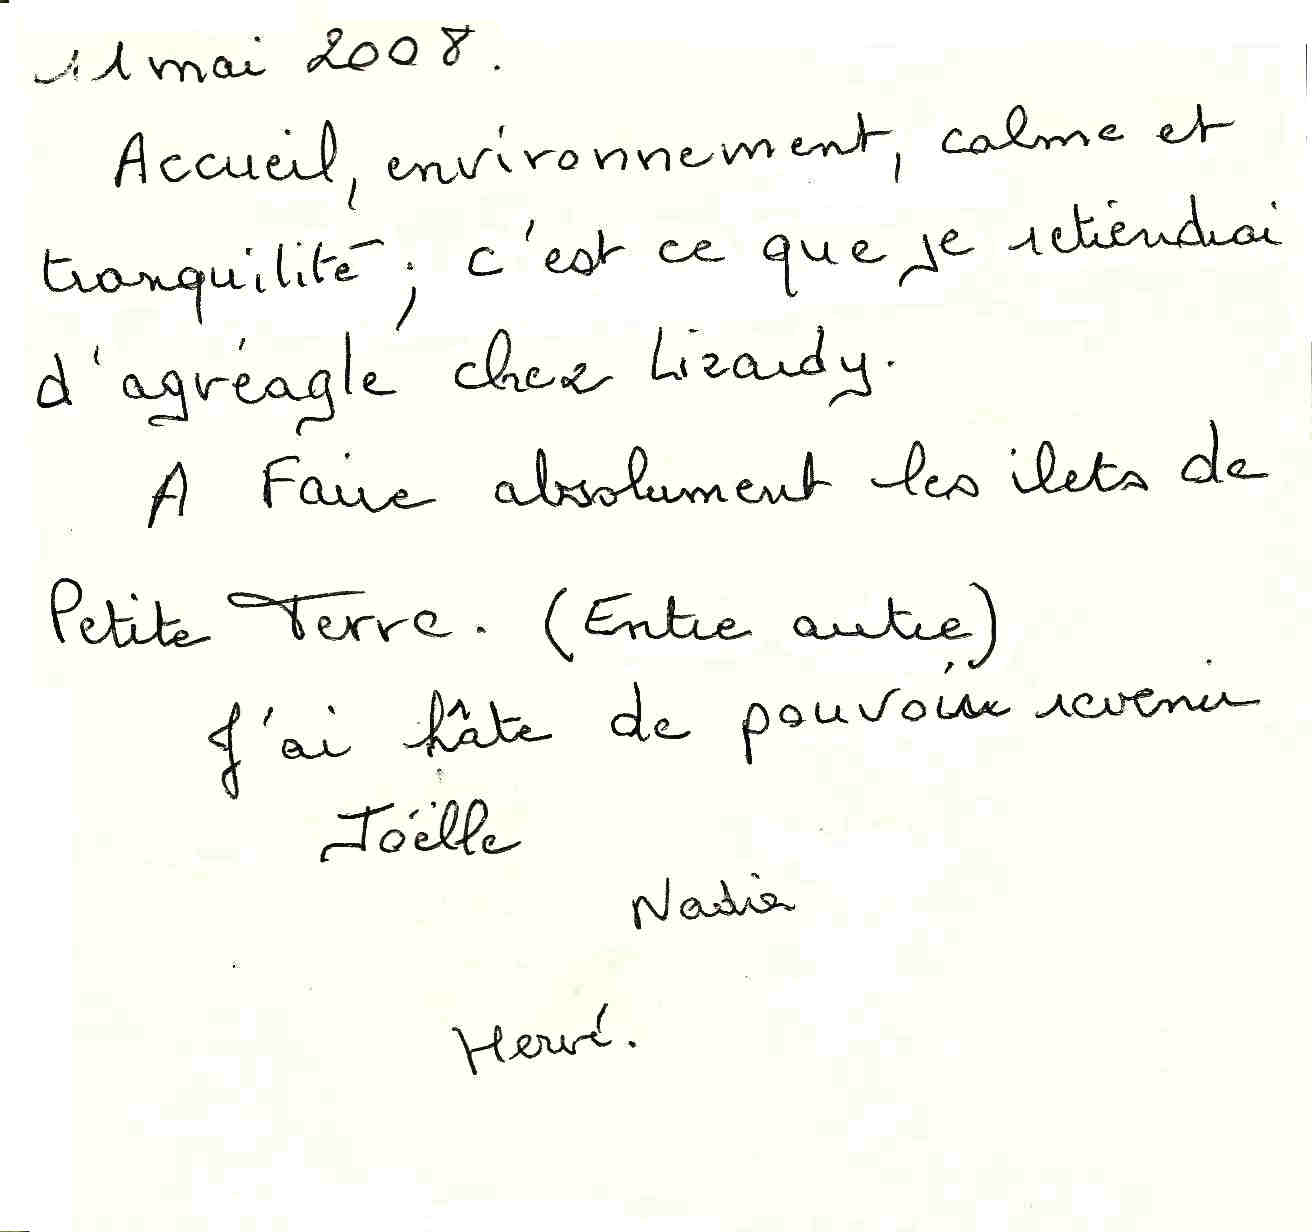 11 mai 2008.
Accueil, environnement, calme et
tranquilité ; c'est ce que je retiendrai
d'agréagle chez Lizardy.
A Faire absolument les ilets de
Petite Terre. (Entre autre)
J'ai hâte de pouvoir revenir
Joëlle
Nadia
Hervé.